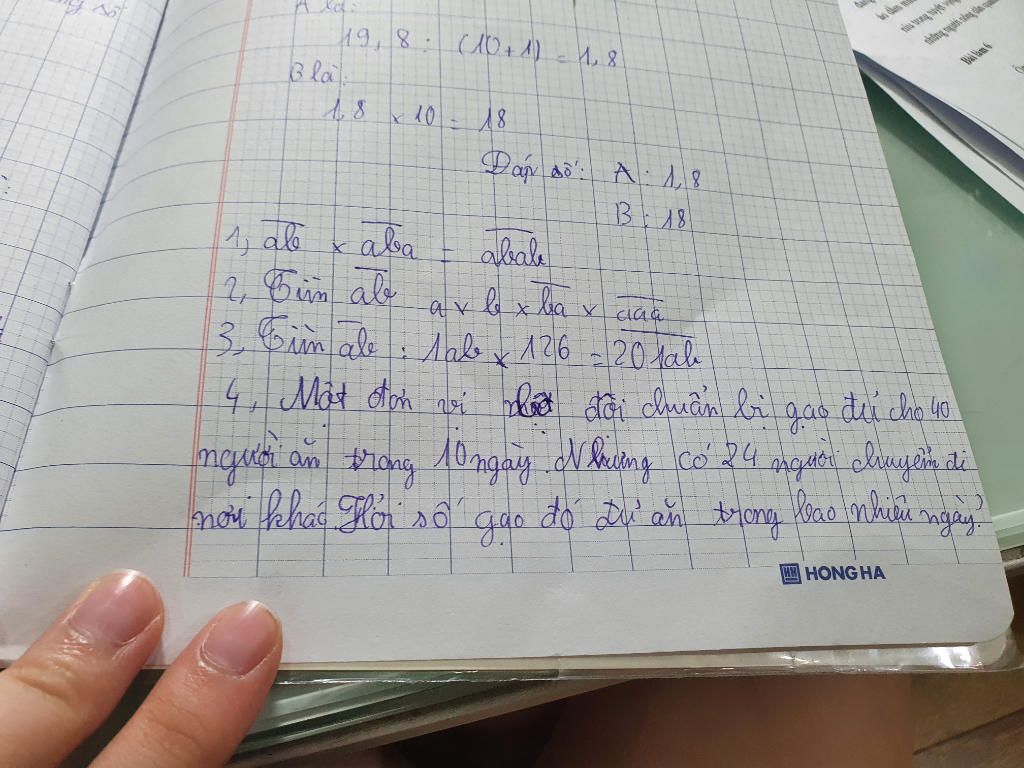 A là:
19,8 : (10+1) = 1,8
B là:
1,8 × 10 = 18
Đáp số: A : 1,8
B : 18
1, ab × aba = abab
2, Tìm ab a × b × ba × aaa
3, Tìm ab : 1ab × 126 = 201ab
4, Một đơn vị đội chuẩn bị gạo đủ cho 40
người ăn trong 10 ngày. Nhưng có 24 người chuyển đi
nơi khác Hỏi số gạo đó đủ ăn trong bao nhiêu ngày?
HONG HA
Bài làm 6